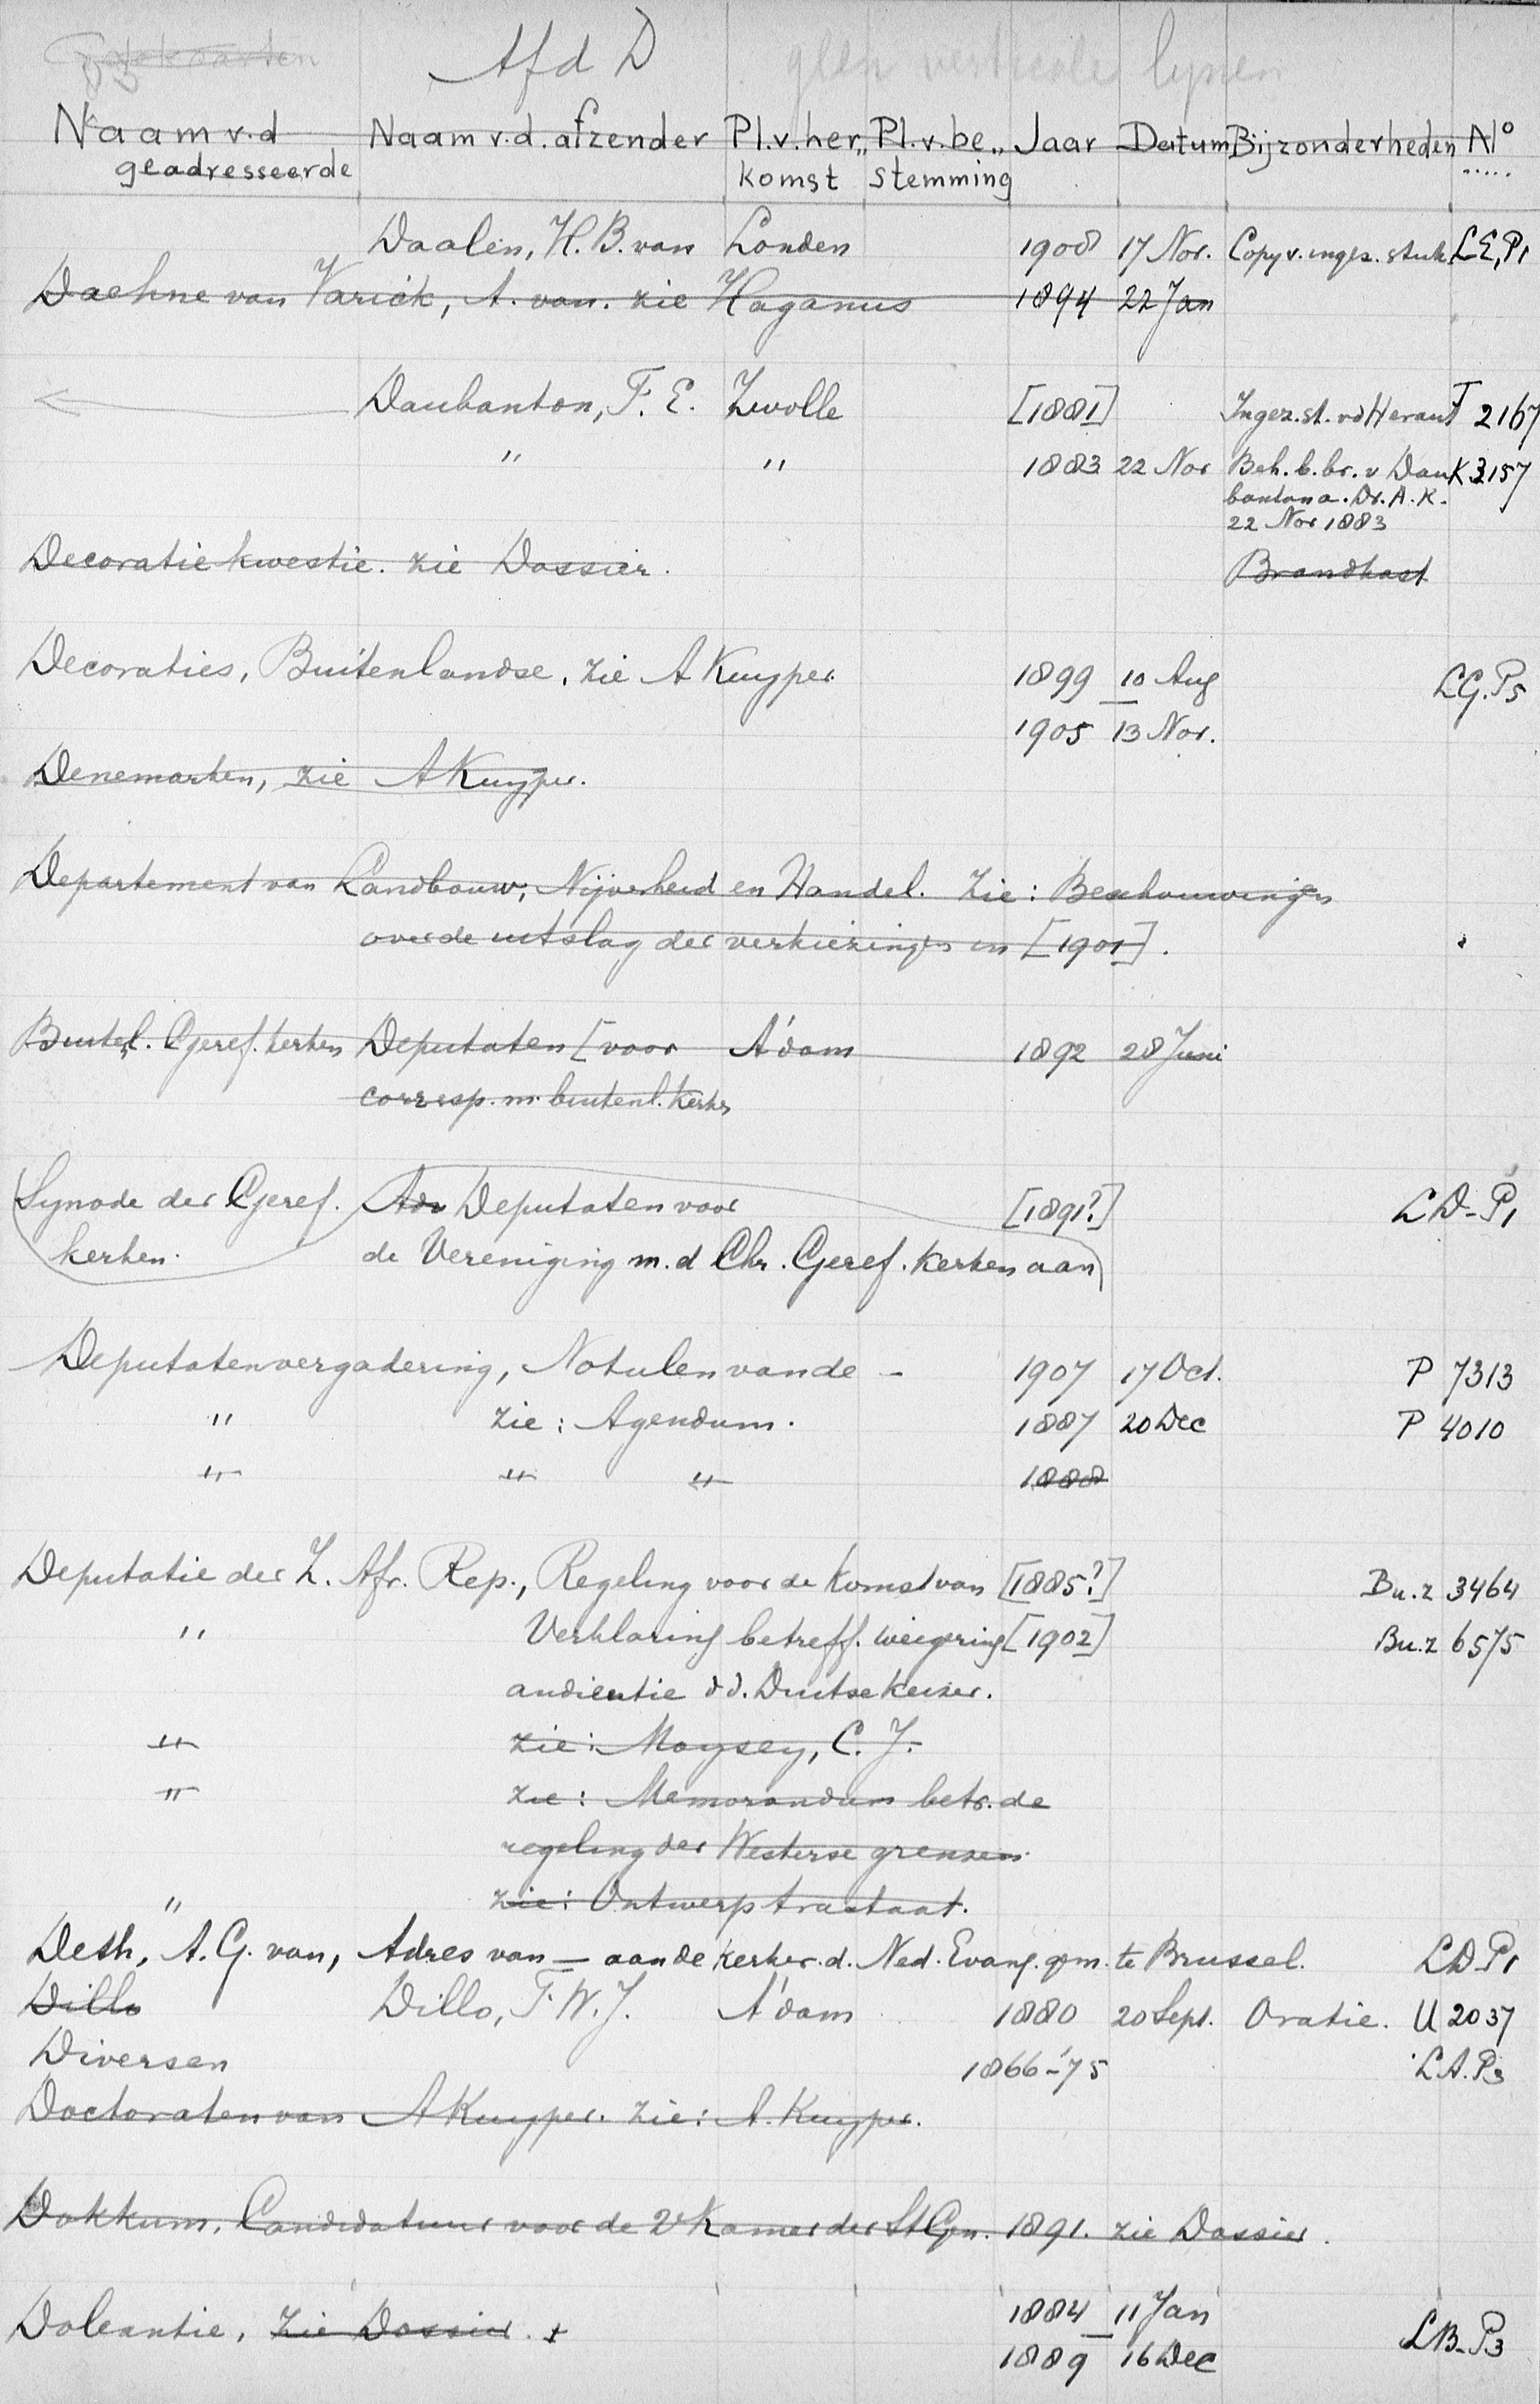 Afd D geen verticale lijnen
Naam v.d Naam v.d. afzender Pl.v.her„ Pl.v.be„ Jaar Datum Bijzonderheden No
geadresseerde komst stemming
Daalen, H. B. van Londen 1908 17 Nov. Copy v. ingez. stuk. LE, P1
Daehne van Varick, A. van. zie Haganus 1894 22 Jan
Daubanton, F. E. Zwolle [1881] Ingez. st. v d Heraut F 2167
" " 1883 22 Nov Beh. b. br. v Dau K 3157
banton a. Dr. A. K.
22 Nov 1883
Decoratiekwestie. zie Dossier. Brandkast
Decoraties, Buitenlandse. zie A Kuyper. 1899 10 Aug LG. P5
1905 13 Nov.
Denemarken, zie A Kuyper.
Departement van Landbouw, Nijverheid en Handel. Zie: Beschouwingen
over de uitslag der verkiezingen in [1901].
Buitel. Geref. kerken Deputaten [voor A'dam 1892 28 Juni
corresp. m. buitenl. kerken
Synode der Geref. Adv Deputaten voor [1891?] LD-P1
kerken. de Vereniging m. d Chr. Geref. kerken aan
Deputatenvergadering, Notulen van de - 1907 17 Oct. P 7313
" zie: Agendum. 1887 20 Dec P 4010
" " " 1888
Deputatie der Z. Afr. Rep., Regeling voor de komst van [1885?] Bu. z 3464
" Verklaring betreff. weigering [1902] Bu. z 6575
audientie d d. Duitse keizer.
" zie: Moysey, C. J.
" zie: Memorandum betr. de
regeling der Westerse grenzen.
" zie: Ontwerp tractaat.
Deth, A. G. van, Adres van - aan de kerker. d. Ned. Evang. gem. te Brussel. LD-P1
Dillo Dillo, F. W. J. A'dam 1880 20 Sept. Oratie. U 2037
Diversen 1866-'75 LA. P3
Doctoraten van A Kuyper. zie: A. Kuyper.
Dokkum, Candidatuur voor de 2e Kamer der St Gen. 1891. zie Dossier.
Doleantie, zie Dossier. x 1884 11 Jan LB-P3
1889 16 Dec